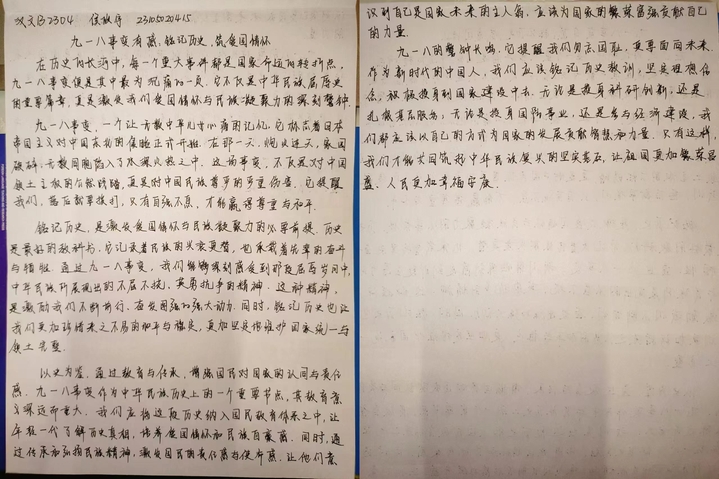 汉文B2304 23105020415
九一八事变有感，铭记历史，筑爱国情怀
在历史的长河中，每一个重大事件都是国家命运的转折点，
九一八事变便是其中最为沉痛的一页。它不仅是中华民族屈辱史
的重要篇章，更是激发我们爱国情怀与民族凝聚力的深刻警钟。
九一八事变，一个让无数中华儿女心痛的记忆，它标志着日本
帝国主义对中国东北的侵略正式开始。在那一天，炮火连天，家园
破碎，无数同胞陷入了水深火热之中。这场事变，不仅是对中国
领土主权的公然践踏，更是对中国民族尊严的严重伤害。它提醒
我们，落后就要挨打，只有自强不息，才能赢得尊重与和平。
铭记历史，是激发爱国情怀与民族凝聚力的必要前提。历史
是最好的教科书，它记录着民族的兴衰更替，也承载着先辈的奋斗
与牺牲。通过九一八事变，我们能够深刻感受到那段屈辱岁月中，
中华民族所展现出的不屈不挠，英勇抗争的精神。这种精神，
是激励我们不断前行、奋发图强的强大动力。同时，铭记历史也让
我们更加珍惜来之不易的和平与稳定，更加坚定地维护国家统一与
领土完整。
以史为鉴，通过教育与传承，增强国民对国家的认同与责任
感。九一八事变作为中华民族历史上的一个重要节点，其教育意
义深远而重大。我们应将这段历史纳入国民教育体系之中，让
年轻一代了解历史真相，培养爱国情怀和民族自豪感。同时，通
过传承和弘扬民族精神，激发国民的责任感与使命感，让他们意
识到自己是国家未来的主人翁，应该为国家的繁荣富强贡献自己
的力量。
九一八的警钟长鸣，它提醒我们勿忘国耻，更要面向未来。
作为新时代的中国人，我们应该铭记历史教训，坚定理想信
念，积极投身到国家建设中去。无论是投身科研创新，还是
扎根基层服务；无论是投身国防事业，还是参与经济建设，我
们都应该以自己的方式为国家的发展贡献智慧和力量。只有这样，
我们才能共同筑起中华民族复兴的坚实基石，让祖国更加繁荣昌
盛、人民更加幸福安康。